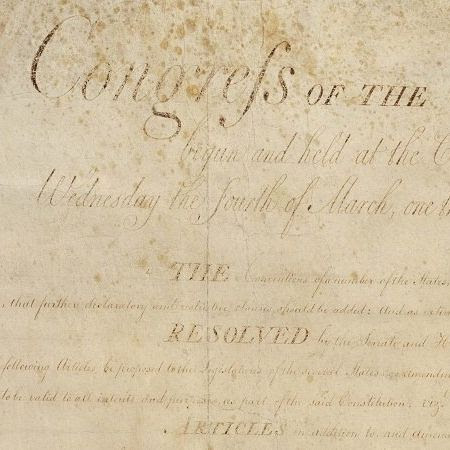 Congreſs OF THE
begun and held at the C
Wednesday the Fourth of March, one th
THE Conventions of a number of the States
, that further declaratory and restrictive clauses should be added: And as exten
RESOLVED by the Senate and H
following Articles be proposed to the Legislatures of the several States, as amendmen
to be valid to all intents and purposes, as part of the said Constitution. viz.
ARTICLES in addition to, and Amendm